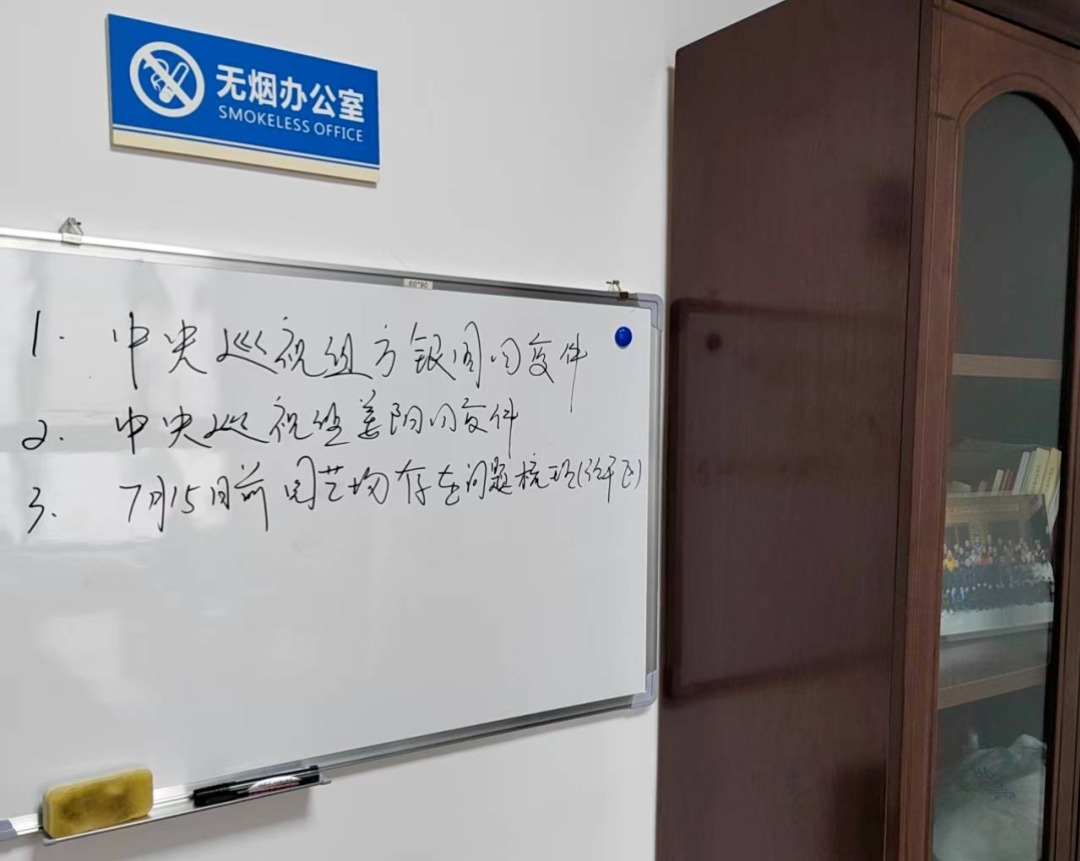 无烟办公室
SMOKELESS OFFICE
1. 中央巡视组方银周回复件
2. 中央巡视组姜阳回复件
3. 7月15日前园艺场存在问题梳理